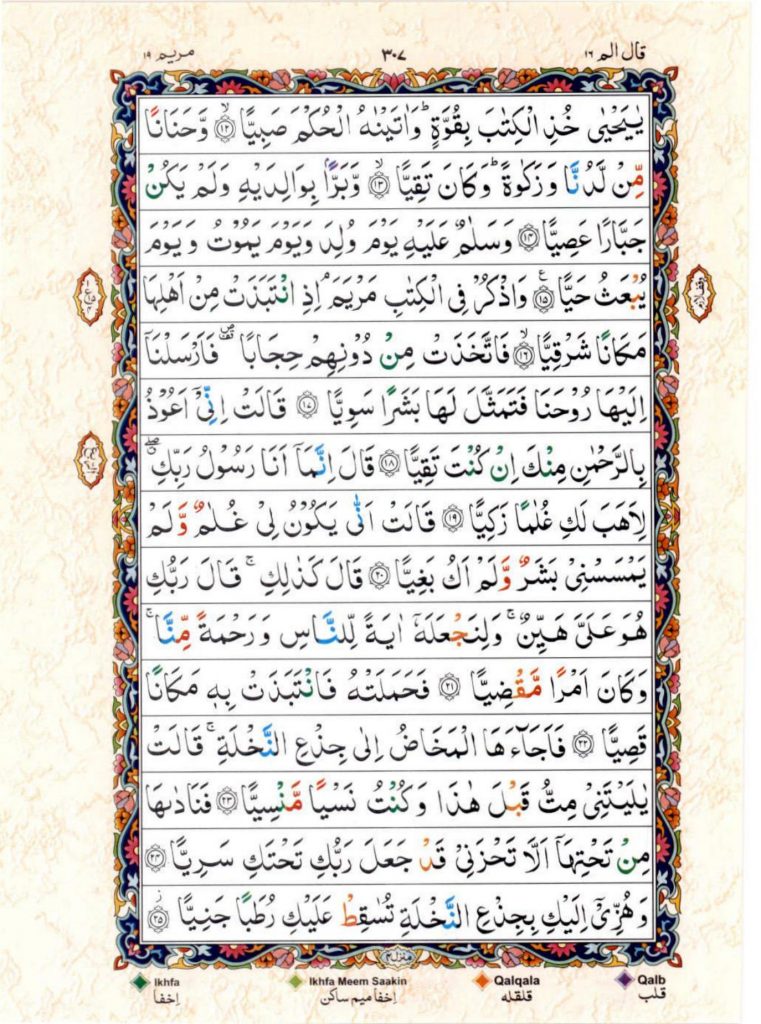 قال الم ١٦ ٣٠٧ مريم ١٩
يٰيَحْيٰى خُذِ الْكِتٰبَ بِقُوَّةٍ ؕ وَاٰتَيْنٰهُ الْحُكْمَ صَبِيًّا ۙ‏﴿۱۲﴾ وَّحَنَانًا
مِّنْ لَّدُنَّا وَزَكٰوةً ؕ وَكَانَ تَقِيًّا ۙ‏﴿۱۳﴾ وَّبَرًّۢا بِوَالِدَيْهِ وَلَمْ يَكُنْ
جَبَّارًا عَصِيًّا ﴿۱۴﴾ وَسَلٰمٌ عَلَيْهِ يَوْمَ وُلِدَ وَيَوْمَ يَمُوْتُ وَيَوْمَ
يُبْعَثُ حَيًّا ﴿۱۵﴾ وَاذْكُرْ فِى الْكِتٰبِ مَرْيَمَ ۘ اِذِ انْتَبَذَتْ مِنْ اَهْلِهَا
مَكَانًا شَرْقِيًّا ۙ‏﴿۱۶﴾ فَاتَّخَذَتْ مِنْ دُوْنِهِمْ حِجَابًا ۪ قف فَاَرْسَلْنَاۤ
اِلَيْهَا رُوْحَنَا فَتَمَثَّلَ لَهَا بَشَرًا سَوِيًّا ﴿۱۷﴾ قَالَتْ اِنِّىْۤ اَعُوْذُ
بِالرَّحْمٰنِ مِنْكَ اِنْ كُنْتَ تَقِيًّا ﴿۱۸﴾ قَالَ اِنَّمَاۤ اَنَا رَسُوْلُ رَبِّكِ ۖ
لِاَهَبَ لَكِ غُلٰمًا زَكِيًّا ﴿۱۹﴾ قَالَتْ اَنّٰى يَكُوْنُ لِىْ غُلٰمٌ وَّلَمْ
يَمْسَسْنِىْ بَشَرٌ وَّلَمْ اَكُ بَغِيًّا ﴿۲۰﴾ قَالَ كَذٰلِكِ ۚ قَالَ رَبُّكِ
هُوَ عَلَىَّ هَيِّنٌ ۚ وَلِنَجْعَلَهٗۤ اٰيَةً لِّلنَّاسِ وَرَحْمَةً مِّنَّا ۚ
وَكَانَ اَمْرًا مَّقْضِيًّا ﴿۲۱﴾ فَحَمَلَتْهُ فَانْتَبَذَتْ بِهٖ مَكَانًا
قَصِيًّا ﴿۲۲﴾ فَاَجَآءَهَا الْمَخَاضُ اِلٰى جِذْعِ النَّخْلَةِ ۚ قَالَتْ
يٰلَيْتَنِىْ مِتُّ قَبْلَ هٰذَا وَكُنْتُ نَسْيًا مَّنْسِيًّا ﴿۲۳﴾ فَنَادٰىهَا
مِنْ تَحْتِهَاۤ اَلَّا تَحْزَنِىْ قَدْ جَعَلَ رَبُّكِ تَحْتَكِ سَرِيًّا ﴿۲۴﴾
وَهُزِّىْۤ اِلَيْكِ بِجِذْعِ النَّخْلَةِ تُسٰقِطْ عَلَيْكِ رُطَبًا جَنِيًّا ﴿۲۵﴾
منزل ٤
Ikhfa Ikhfa Meem Saakin Qalqala Qalb
اِخفا اِخفا ميم ساكن قلقله قلب